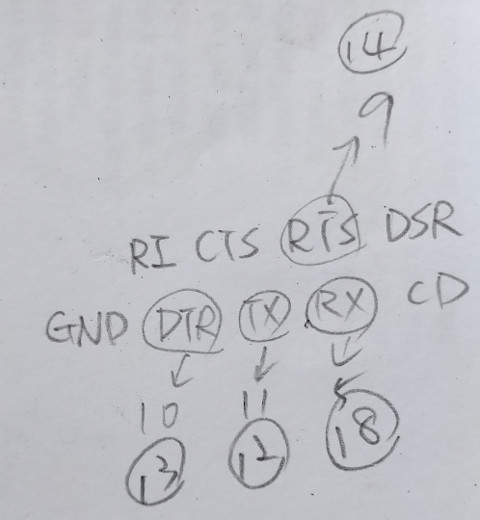 14
9
RI CTS RTS DSR
GND DTR TX RX CD
10 11
13 12 18